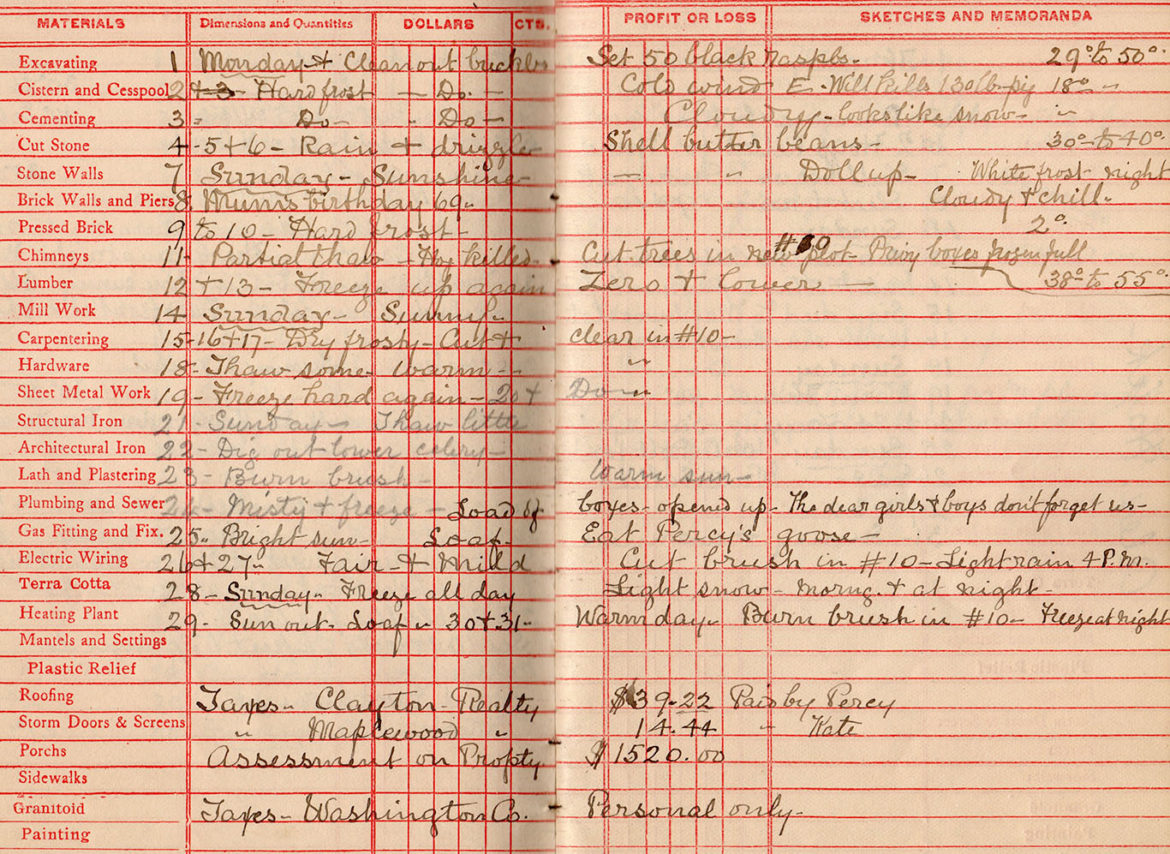 MATERIALS Dimensions and Quantities DOLLARS CTS. PROFIT OR LOSS SKETCHES AND MEMORANDA
Excavating 1 Monday + Clean out buckles Set 50 black raspbs. 29° to 50°
Cistern and Cesspool 2 +3- Hard frost - Do. - Cold wind E. Will kills 130 lb. pig 18° - -
Cementing 3 = Do - " Do - Cloudy - looks like snow - "
Cut Stone 4-5+6- Rain + drizzle Shell butter beans - 30° to 40°
Stone Walls 7 Sunday - Sunshine - - " Doll up - White frost night
Brick Walls and Piers 8. Mum's birthday 69 " Cloudy + chill.
Pressed Brick 9 to 10 - Hard frost - 2°.
Chimneys 11- Partial thaw - Hog killed. Cut trees in new #10 plot - Privy boxes frozen full
Lumber 12+13- Freeze up again Zero + lower - 38° to 55°
Mill Work 14 Sunday - Sunny -
Carpentering 15-16+17- Dry frosty - Cut + clear in #10 -
Hardware 18- Thaw some - warm - - "
Sheet Metal Work 19- Freeze hard again - 20 + Do - "
Structural Iron 21- Sunday - Thaw little
Architectural Iron 22- Dig out lower celery -
Lath and Plastering 23- Burn brush - Warm sun -
Plumbing and Sewer 24- Misty + freeze - Load of boxes - opened up - The dear girls + boys don't forget us -
Gas Fitting and Fix. 25" Bright sun - Loaf - Eat Percy's goose -
Electric Wiring 26+27" Fair - + mild Cut brush in #10 - Light rain 4 P.M.
Terra Cotta 28- Sunday - Freeze all day Light snow - morng. + at night -
Heating Plant 29- Sun out - Loaf " 30+31- Warm day - Burn brush in #10 - Freeze at night
Mantels and Settings
Plastic Relief
Roofing Taxes - Clayton - Realty $39.22 Paid by Percy
Storm Doors & Screens " Maplewood " 14.44 " Kate
Porchs Assessment on Propty $1520.00
Sidewalks
Granitoid Taxes - Washington Co. Personal only -
Painting